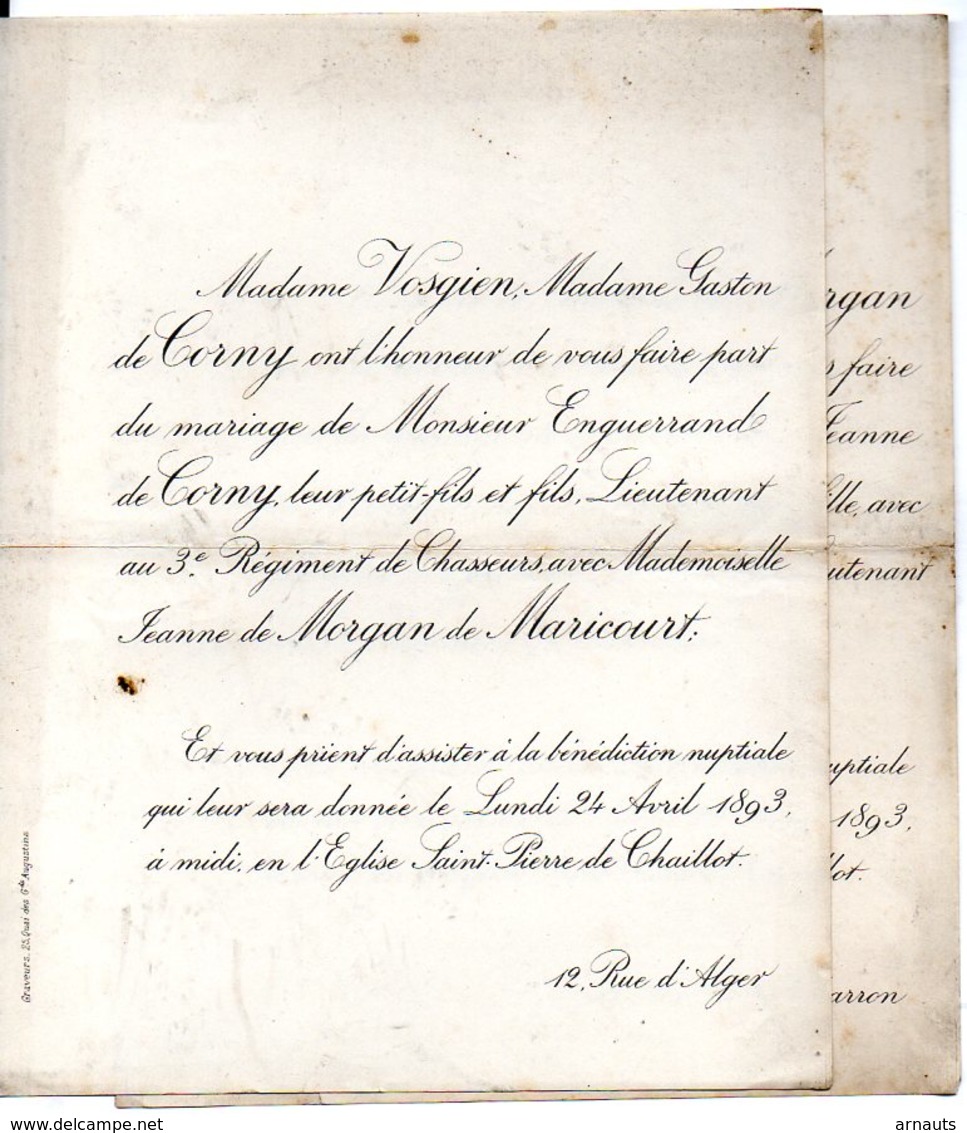 Madame Vosgien, Madame Gaston
de Corny ont l'honneur de vous faire part
du mariage de Monsieur Enguerrand
de Corny, leur petit-fils et fils, Lieutenant
au 3e. Régiment de Chasseurs, avec Mademoiselle
Jeanne de Morgan de Maricourt;
Et vous prient d'assister à la bénédiction nuptiale
qui leur sera donnée le Lundi 24 Avril 1893,
à midi, en l'Eglise Saint-Pierre de Chaillot.
12, Rue d'Alger
Graveurs, 25, Quai des Gds Augustins
rgan
faire
Jeanne
ille, avec
utenant
uptiale
1893,
lot.
arron
delcampe.net
arnauts